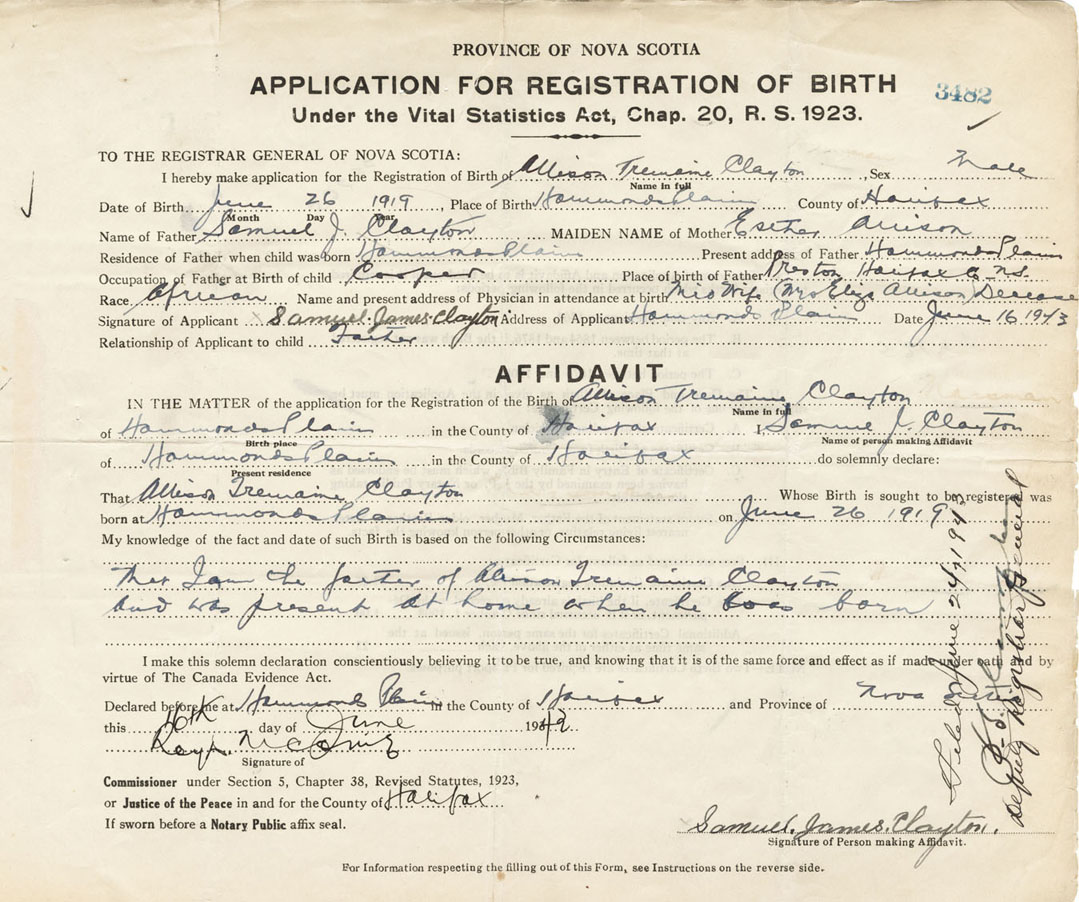 PROVINCE OF NOVA SCOTIA
APPLICATION FOR REGISTRATION OF BIRTH
3482
Under the Vital Statistics Act, Chap. 20, R. S. 1923.
TO THE REGISTRAR GENERAL OF NOVA SCOTIA:
I hereby make application for the Registration of Birth of Allison Tremaine Clayton, Sex Male
Name in full
Date of Birth June 26 1919, Place of Birth Hammonds Plain County of Halifax
Month Day Year
Name of Father Samuel J. Clayton MAIDEN NAME of Mother Esther Allison
Residence of Father when child was born Hammonds Plain Present address of Father Hammonds Plain
Occupation of Father at Birth of child Cooper Place of birth of Father Preston Halifax Co N.S.
Race African Name and present address of Physician in attendance at birth Mid Wife Mrs Eliza Allison Decease
Signature of Applicant Samuel. James. Clayton Address of Applicant Hammonds Plain Date June 16 1943
Relationship of Applicant to child Father
AFFIDAVIT
IN THE MATTER of the application for the Registration of the Birth of Allison Tremaine Clayton
Name in full
of Hammonds Plain in the County of Halifax I Samuel J. Clayton
Birth place Name of person making Affidavit
of Hammonds Plain in the County of Halifax do solemnly declare:
Present residence
That Allison Tremaine Clayton Whose Birth is sought to be registered was
born at Hammonds Plain on June 26 1919
My knowledge of the fact and date of such Birth is based on the following Circumstances:
That I am the father of Allison Tremaine Clayton
and was present at home when he was born
I make this solemn declaration conscientiously believing it to be true, and knowing that it is of the same force and effect as if made under oath and by
virtue of The Canada Evidence Act.
Declared before me at Hammonds Plain in the County of Halifax and Province of Nova
this 16th day of June 19
Signature of
Commissioner under Section 5, Chapter 38, Revised Statutes, 1923,
or Justice of the Peace in and for the County of Halifax
If sworn before a Notary Public affix seal.
Samuel. James. Clayton.
Signature of Person making Affidavit.
For Information respecting the filling out of this Form, see Instructions on the reverse side.
Filed June 24, 1943
Deputy Registrar General